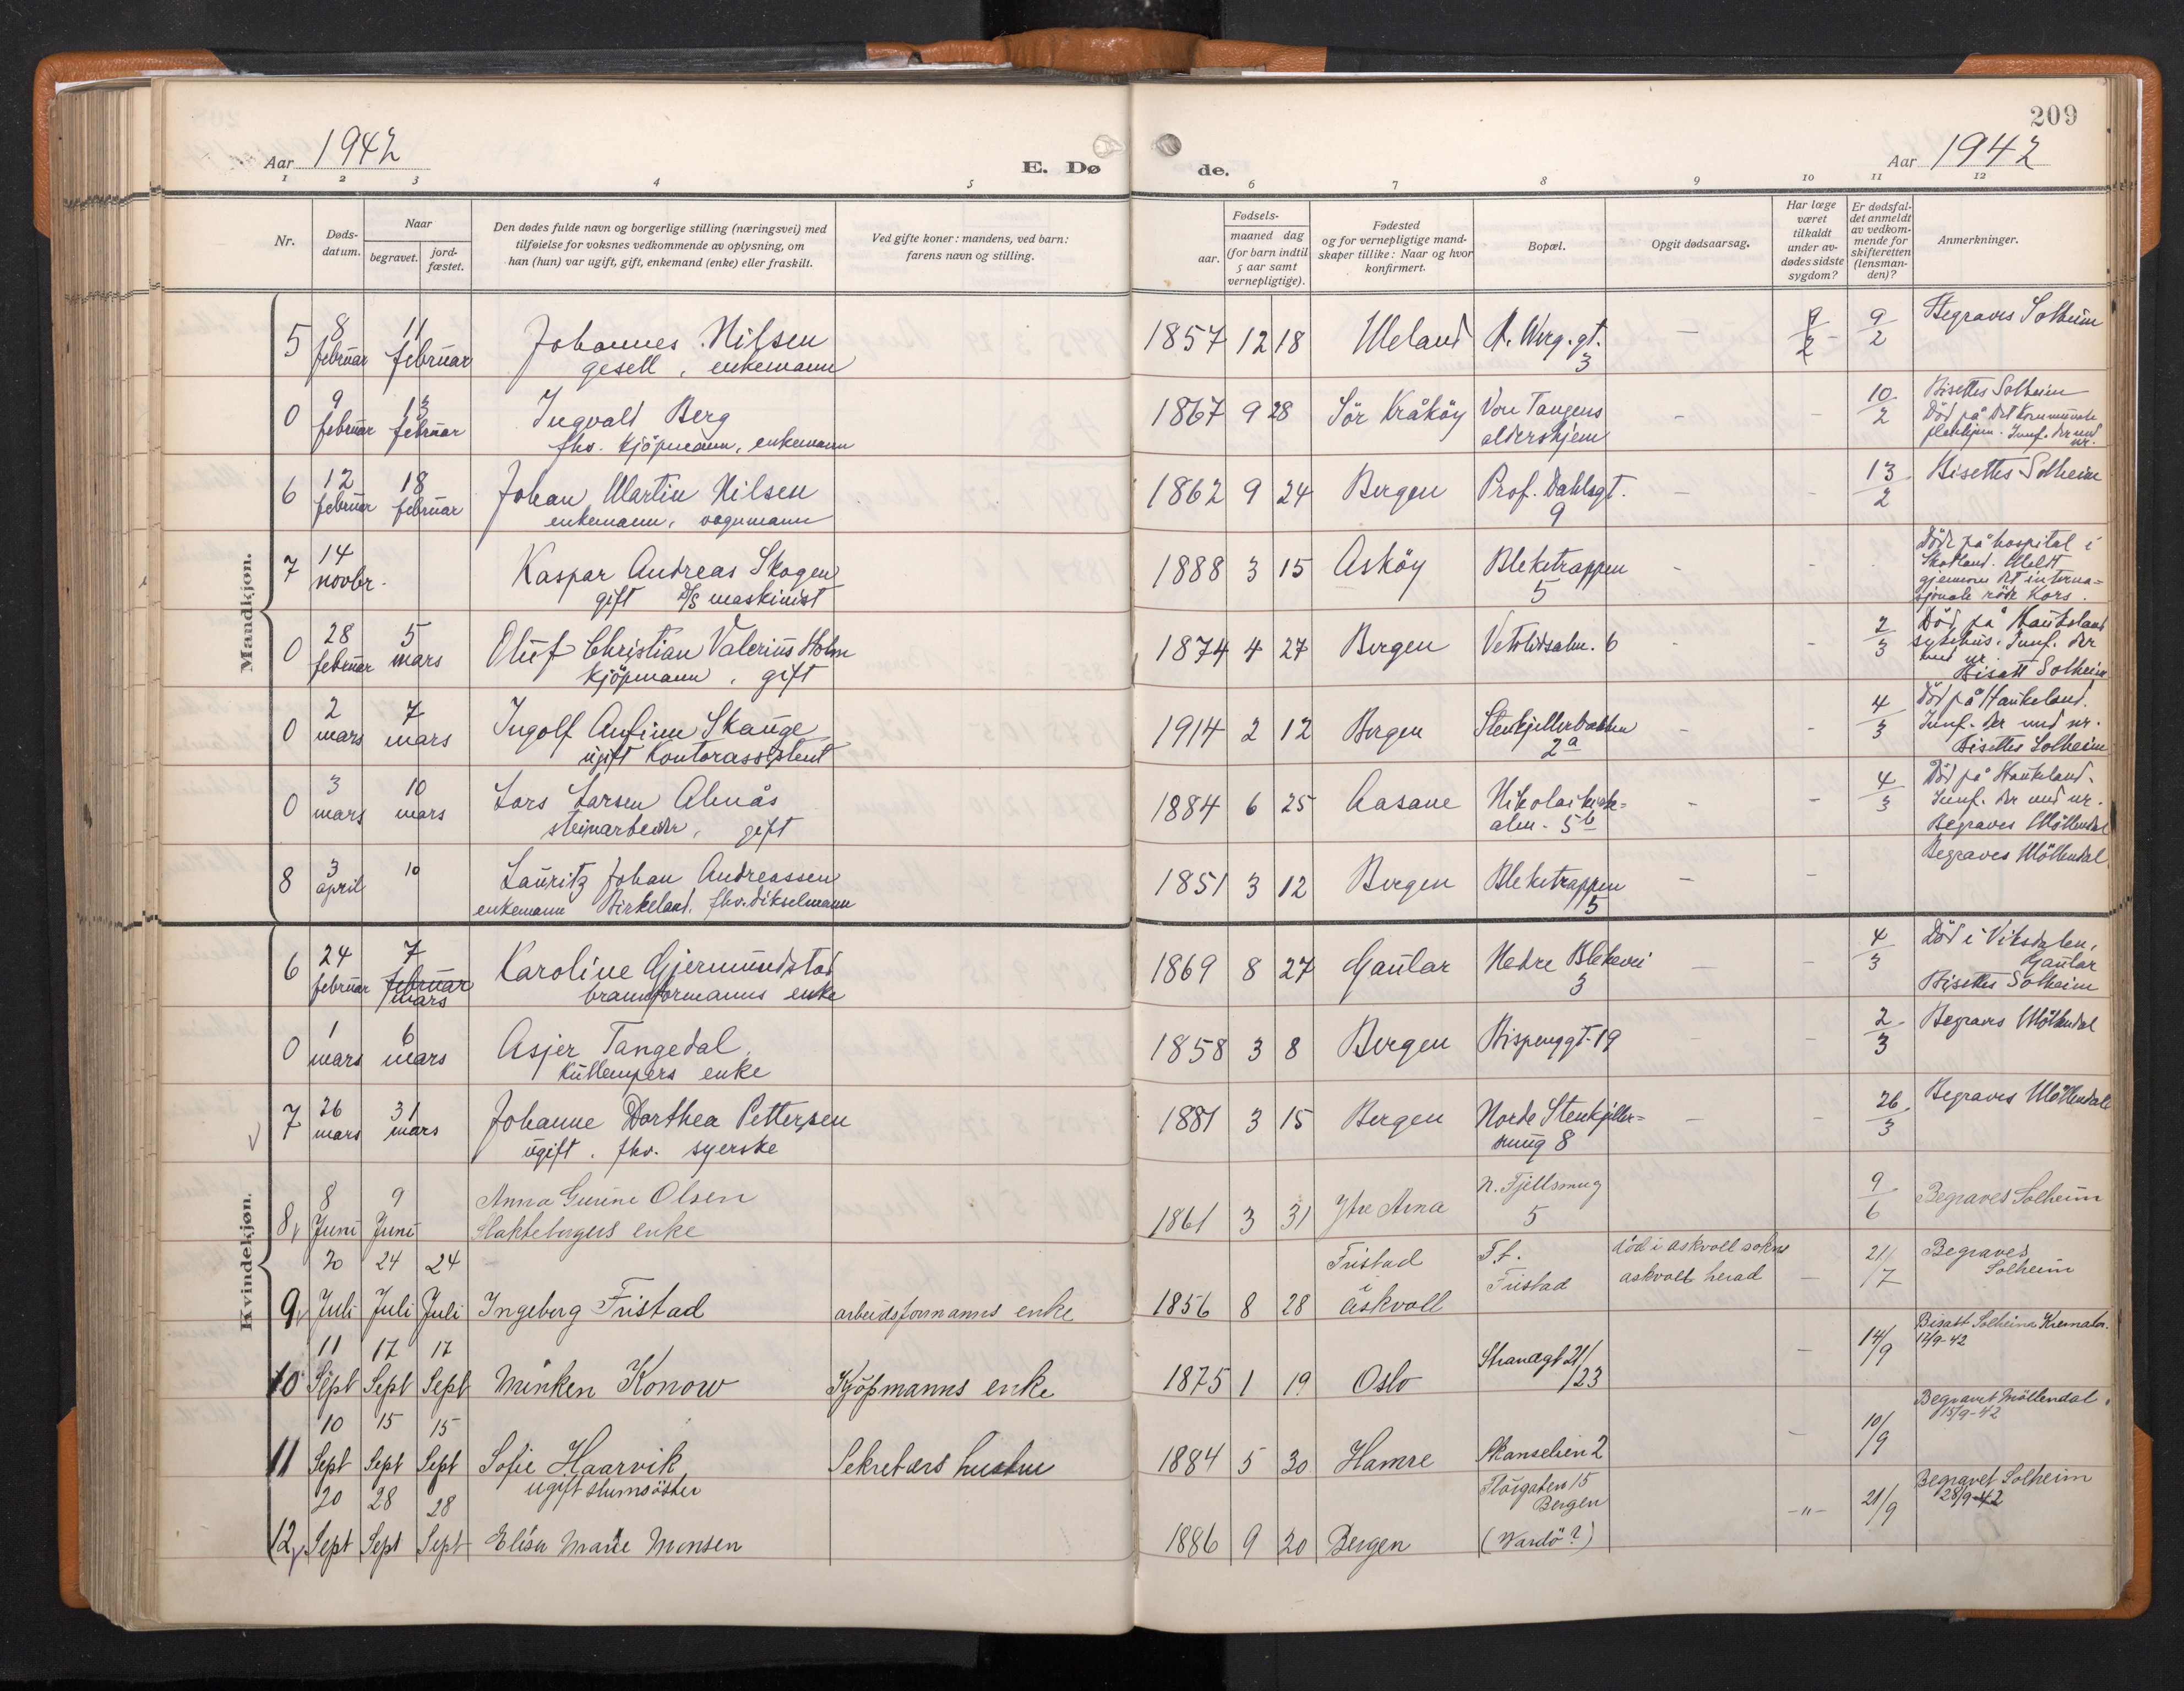 209
Aar 1942
E. Døde.
Aar 1942
1 2 3 4 5 6 7 8 9 10 11 12
Nr.
Døds-datum.
Naar
begravet.
jord-fæstet.
Den dødes fulde navn og borgerlige stilling (næringsvei) med
tilføielse for voksnes vedkommende av oplysning, om
han (hun) var ugift, gift, enkemand (enke) eller fraskilt.
Ved gifte koner: mandens, ved barn:
farens navn og stilling.
Fødsels-
aar.
maaned dag
(for barn indtil
5 aar samt
vernepligtige).
Fødested
og for vernepligtige mand-
skaper tillike: Naar og hvor
konfirmert.
Bopæl.
Opgit dødsaarsag.
Har læge
været
tilkaldt
under av-
dødes sidste
sygdom?
Er dødsfal-
det anmeldt
av vedkom-
mende for
skifteretten
(lensman-
den)?
Anmerkninger.
Mandkjøn.
5 8 februar 11 februar Johannes Nilsen 1857 12 18 3 9/2 9/2 Begraves Solheim
gesell, enkemann
0 9 februar 13 februar Ingvald Berg 1867 9 28 Sör Kråköy Von Tangens 10/2 Bisettes Solheim
fhv. kjöpmann, enkemann aldershjem Död på det kommunale
pleiehjem. Innf. der med nr.
6 12 februar 18 februar Johan Martin Nilsen 1862 9 24 Bergen Prof. Dahlsgt. 9 13/2 Bisettes Solheim
enkemann, vognmann
7 14 novbr. Kaspar Andreas Skogen 1888 3 15 Asköy Bleketrappen 5 Döde på hospital i
gift D/S maskinist Skotland. Meldt
gjennom det interna-
sjonale röde Kors.
0 28 februar 5 mars Oluf Christian Valerius Holm 1874 4 27 Bergen Vetrlidsalm. 6 2/3 Död på Haukeland
kjöpmann, gift sykehus. Innf. der
med nr.
Bisatt Solheim
0 2 mars 7 mars Ingolf Anfinn Skauge 1914 2 12 Bergen Stenkjellerbakken 2a 4/3 Död på Haukeland.
ugift Kontorassistent Innf. der med nr.
Bisettes Solheim
0 3 mars 10 mars Lars Larsen Almås 1884 6 25 Aasane Nikolaikirke- 4/3 Död på Haukeland.
steinarbeider, gift alm. 5b Innf. der med nr.
Begraves Möllendal
8 3 april 10 Lauritz Johan Andreassen 1851 3 12 Bergen Bleketrappen 5 Begraves Möllendal
enkemann Birkeland. fhv. dikselmann
Kvindekjøn.
6 24 februar 7 februar mars Karoline Gjermundstad 1869 8 27 Gaular Nedre Blekevei 3 4/3 Död i Viksdalen,
brannformanns enke Gaular
Bisettes Solheim
0 1 mars 6 mars Asjer Tangedal 1858 3 8 Bergen Bispenggt. 19 2/3 Begraves Möllendal
Kullempers enke
7 26 mars 31 mars Johanne Dorthea Pettersen 1881 3 15 Bergen Nordre Stenkjeller- 26/3 Begraves Möllendal
ugift. fhv. syerske smug 8
8 8 Juni 9 Juni Anna Gurine Olsen 1861 3 31 Ytre Arna N. Fjellsmug 5 9/6 Begraves Solheim
Slakteborgers enke
9 20 Juli 24 Juli 24 Juli Ingeborg Fristad arbeidsformanns enke 1856 8 28 Fristad i Askvoll Ft. Fristad död i Askvoll sokn 21/7 Begraves
askvoll herad Solheim
10 11 Sept 17 Sept 17 Sept Minken Konow Kjöpmanns enke 1875 1 19 Oslo Strandgt 21/23 14/9 Bisatt Solheim Kremator.
17/9-42
11 10 Sept 15 Sept 15 Sept Sofie Haarvik Sekretærs hustru 1884 5 30 Hamre Skanselien 2 10/9 Begravet Möllendal
15/9-42
ugift slumsöster
12 20 Sept 28 Sept 28 Sept Elisa Marie Monsen 1886 9 20 Bergen Storgaten 15 -"- 21/9 Begravet Solheim
Bergen 28/9-42
(Vardö?)